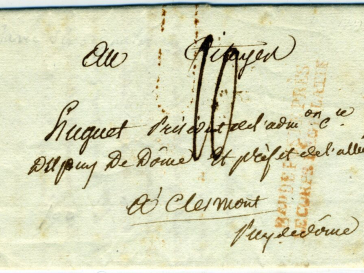 Au Citoyen
Huguet Président de l'adm.on C.le
Du puy De Dôme Et préfet de l'allier
A Clermont
Puy de dôme